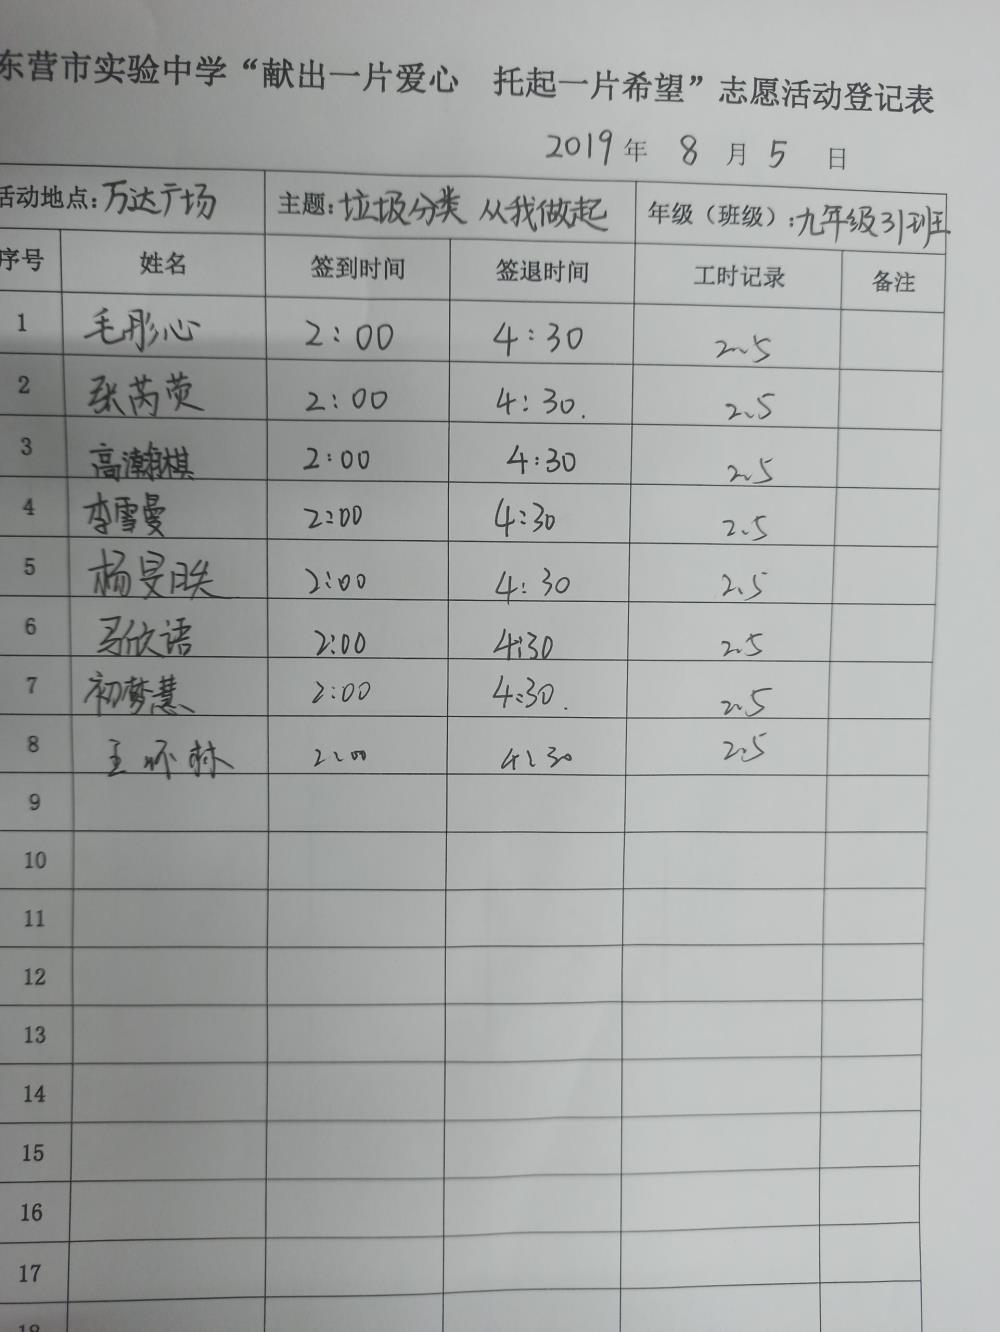 东营市实验中学“献出一片爱心 托起一片希望”志愿活动登记表
2019年 8 月 5 日
活动地点:万达广场 主题:垃圾分类 从我做起 年级(班级):九年级31班
序号 姓名 签到时间 签退时间 工时记录 备注
1 毛彤心 2:00 4:30 2.5
2 张芮荧 2:00 4:30. 2.5
3 高瀚棋 2:00 4:30 2.5
4 李雪曼 2:00 4:30 2.5
5 杨旻昳 2:00 4:30 2.5
6 马欣语 2:00 4:30 2.5
7 初梦慧 2:00 4:30. 2.5
8 王怀林 2:00 4:30 2.5
9
10
11
12
13
14
15
16
17
18